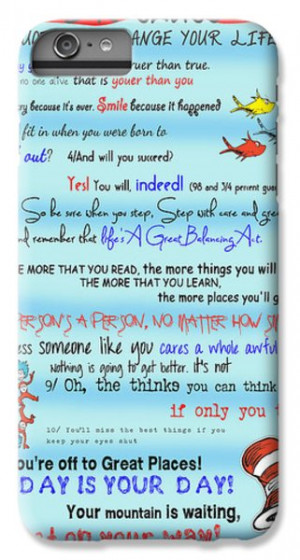 ANGE YOUR LIFE
ruer than true.
no one alive that is youer than you
ry because it's over. Smile because it happened
fit in when you were born to
out? 4/And will you succeed)
Yes! You will, indeed! (98 and 3/4 percent
So be sure when you step, Step with care and
d remember that life's A Great Balancing Act.
E MORE THAT YOU READ, the more things you will
THE MORE THAT YOU LEARN,
the more places you'll
PERSON'S A PERSON, NO MATTER HOW
ess someone like you cares a whole awful
Nothing is going to get better. It's not
9/ Oh, the thinks you can think
if only you
10/ You'll miss the best things if you
keep your eyes shut
ou're off to Great Places!
DAY IS YOUR DAY!
Your mountain is waiting,
t on your way!